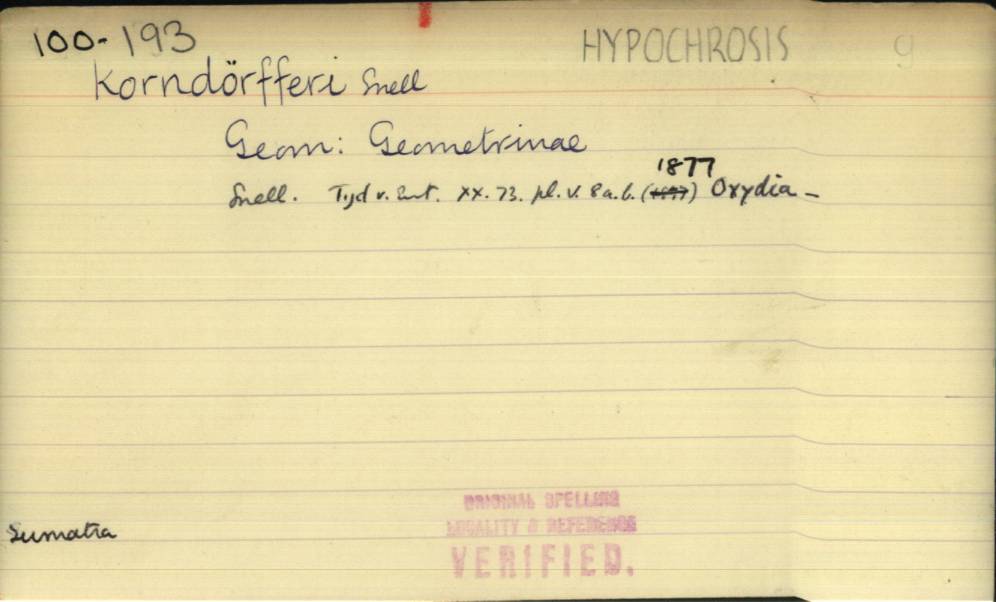 100-193 HYPOCHROSIS g
Korndörfferi Snell
Geom: Geometrinae
1877
Snell. Tijd v. Ent. XX. 73. pl. V. 8 a. b. () Oxydia -
ORIGINAL SPELLING
LOCALITY & REFERENCE
VERIFIED.
Sumatra